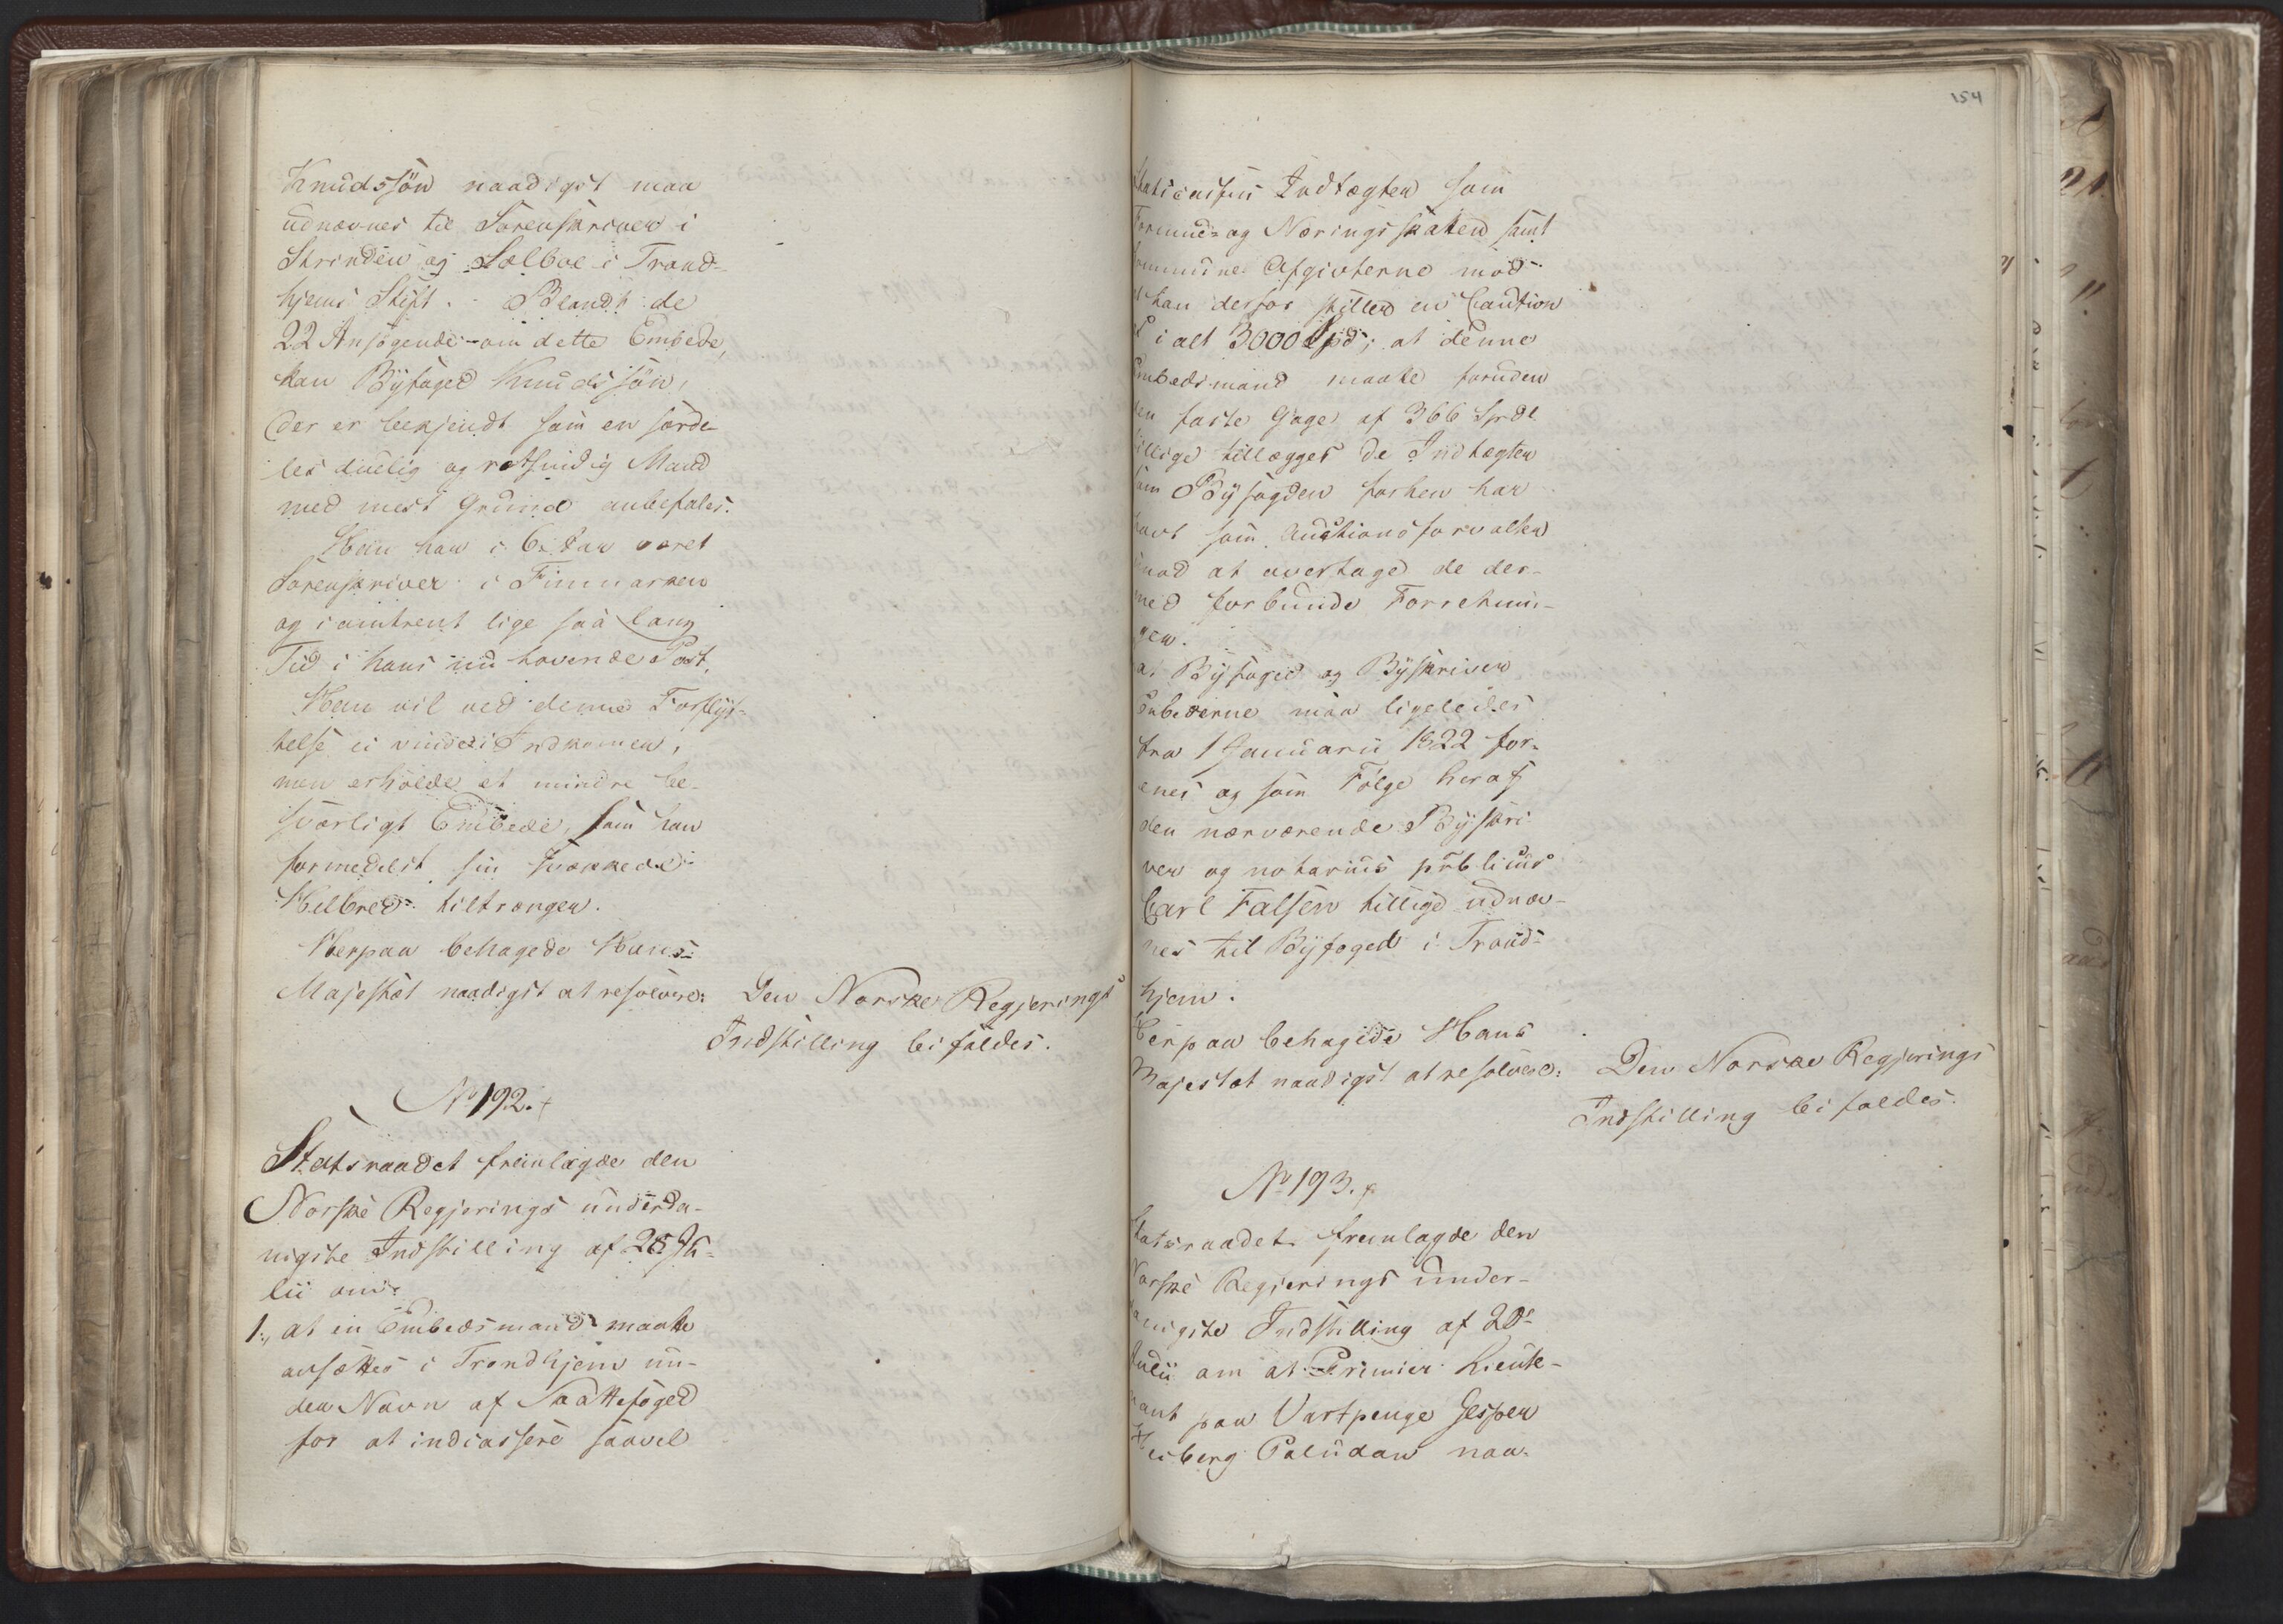 Knudssön naadigst maa
udnævnes til Sorenskriver i
Strinden og Sælboe i Trond-
hjems Stift. - Blandt de
22 Ansögende om dette Embede,
kan Byfoged Knudssön,
der er bekjendt som en særde-
les duelig og retsindig Mand
med mest Grund anbefales.
Han har i 6 Aar været
Sorenskriver i Finmarken
og i omtrent lige saa lang
Tid i hans nu havende Post.
Han vil ved denne Forflyt-
telse ei vinde i Indkomen,
men erholde et mindre be-
sværligt Embede, som han
formedelst sin svækkede
Helbred tiltrænger.
Herpaa behagede Hans
Majestæt naadigst at resolvere:
Den Norske Regjerings
Indstilling bifaldes.
No 192.
Statsraadet fremlagde den
Norske Regjerings underda-
nigste Indstilling af 28 Ju-
lii om:
1., at en Embedsmand maatte
ansættes i Trondhjem un-
der Navn af Skattefoged
for at indcassere saavel
154
Indtægter som
Formue- og Næringsskatten samt
Commune Afgivterne mod
at han derfor stiller en Caution
i alt 3000 Spd; at denne
Embedsmand maatte foruden
den faste Gage af 366 Spdl
tillige tillægges de Indtægter
som Byfogden forhen har
havt som Auctionsforvalter
imod at overtage de der-
med forbundne Forretnin-
ger.
at Byfoged og Byskriver
Embederne maa ligeledes
fra 1 Januarii 1822 for-
enes og som Fölge heraf
den nærværende Byskri-
ver og notarius publicus
Carl Falsen tillige udnæv-
nes til Byfoged i Trond-
hjem.
Herpaa behagede Hans
Majestæt naadigst at resolvere:
Den Norske Regjerings
Indstilling bifaldes.
No 193.
Statsraadet fremlagde den
Norske Regjerings under-
danigste Indstilling af 20de
Julii om at Premier Lieute-
nant paa Vartpenge Jesper
Heiberg Paludan naa-